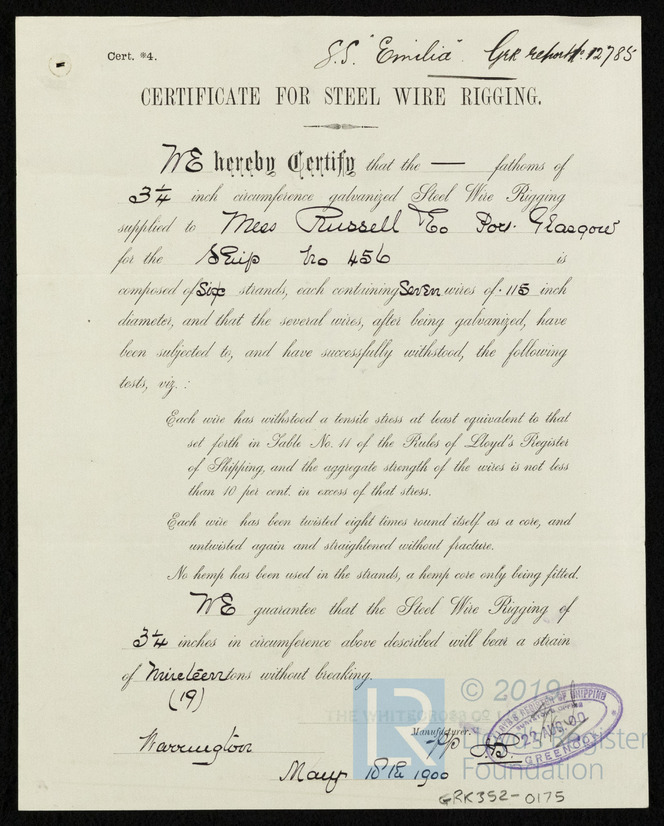 Cert. *4.
S.S. "Emilia". Grk report No. 12785
CERTIFICATE FOR STEEL WIRE RIGGING.
WE hereby Certify that the — fathoms of
3¼ inch circumference galvanized Steel Wire Rigging
supplied to Mess Russell & Co Port Glasgow
for the Ship No 456 is
composed of Six strands, each containing Seven wires of .115 inch
diameter, and that the several wires, after being galvanized, have
been subjected to, and have successfully withstood, the following
tests, viz. :
Each wire has withstood a tensile stress at least equivalent to that
set forth in Table No. 11 of the Rules of Lloyd's Register
of Shipping, and the aggregate strength of the wires is not less
than 10 per cent. in excess of that stress.
Each wire has been twisted eight times round itself as a core, and
untwisted again and straightened without fracture.
No hemp has been used in the strands, a hemp core only being fitted.
WE guarantee that the Steel Wire Rigging of
3¼ inches in circumference above described will bear a strain
of Nineteen tons without breaking.
(19)
© 2019
LR
LLOYD'S REGISTER OF SHIPPING
22 AUG. 00
GREENOCK
Manufacturer.
Lloyd's Register
Foundation
Warrington
May 18th 1900
GRK352-0175